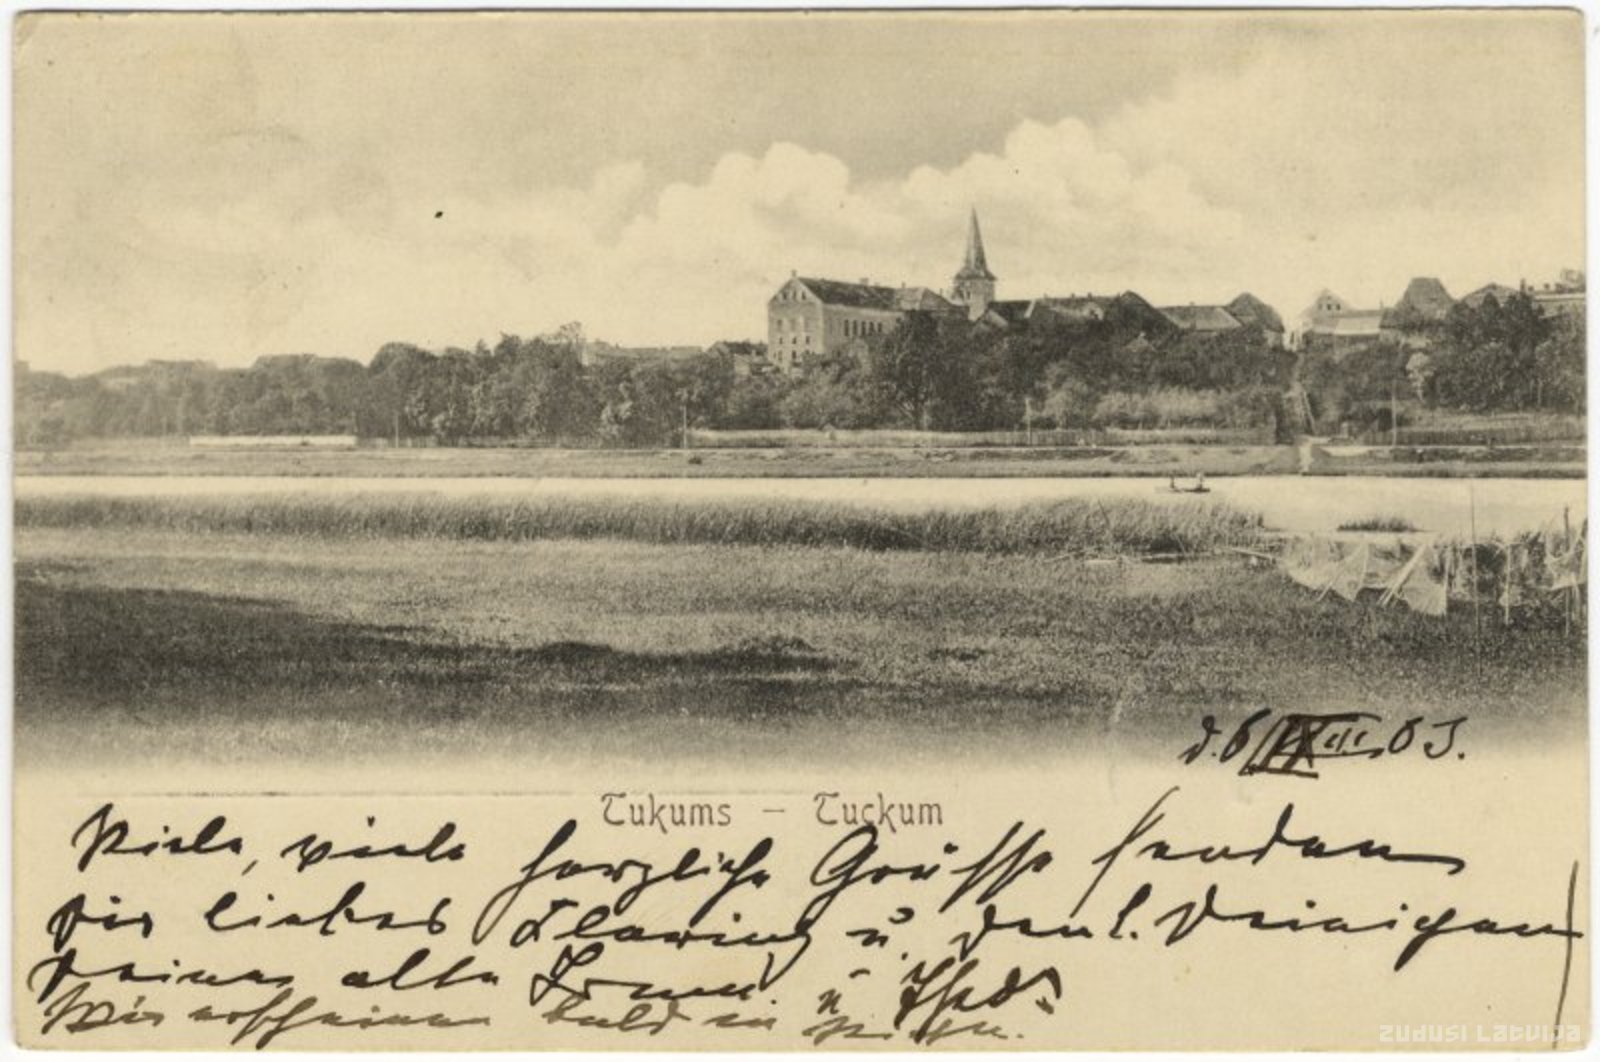 d. 6 VIII 03.
Tukums – Tuckum
Viele, viele herzliche Grüsse senden
Dir liebes u. den l. Deinigen
Deine alte u
Wir erscheinen bald in
ZUDUSI LATVIJA